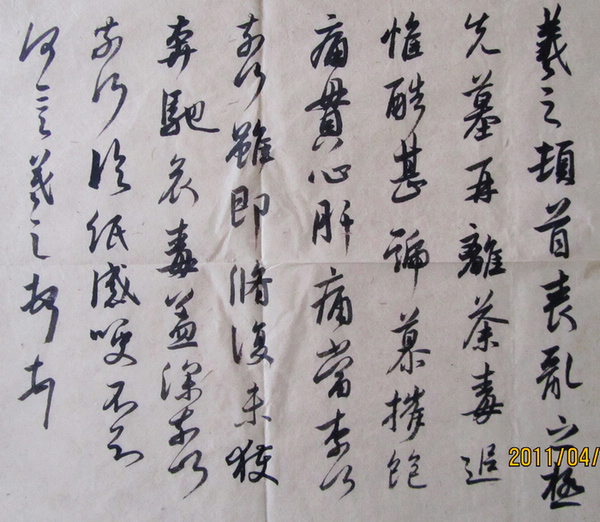 羲之頓首喪亂之極
先墓再離荼毒追
惟酷甚號慕摧絕
痛貫心肝痛當奈何
奈何雖即脩復未獲
奔馳哀毒益深奈何
奈何臨紙感哽不知
何言羲之頓首
2011/04/